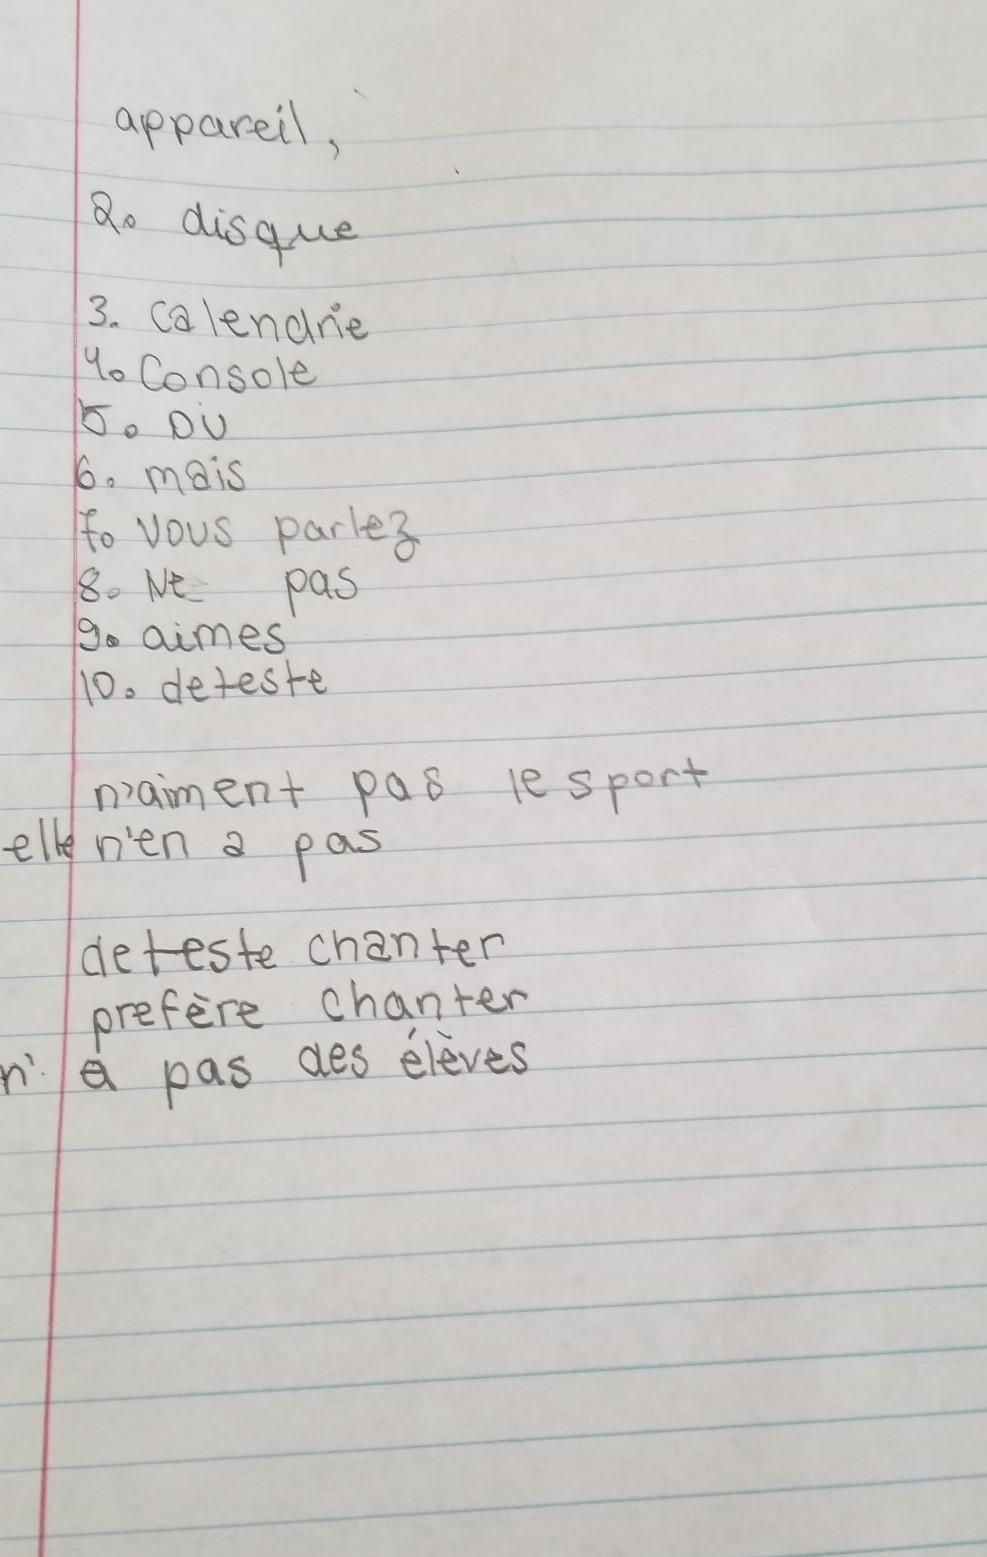 appareil,
2. disque
3. calendrie
4. Console
5. DU
6. mais
7. vous parlez
8. Ne pas
9. aimes
10. deteste
n'aiment pas le sport
elle n'en a pas
deteste chanter
prefère chanter
n' a pas des élèves